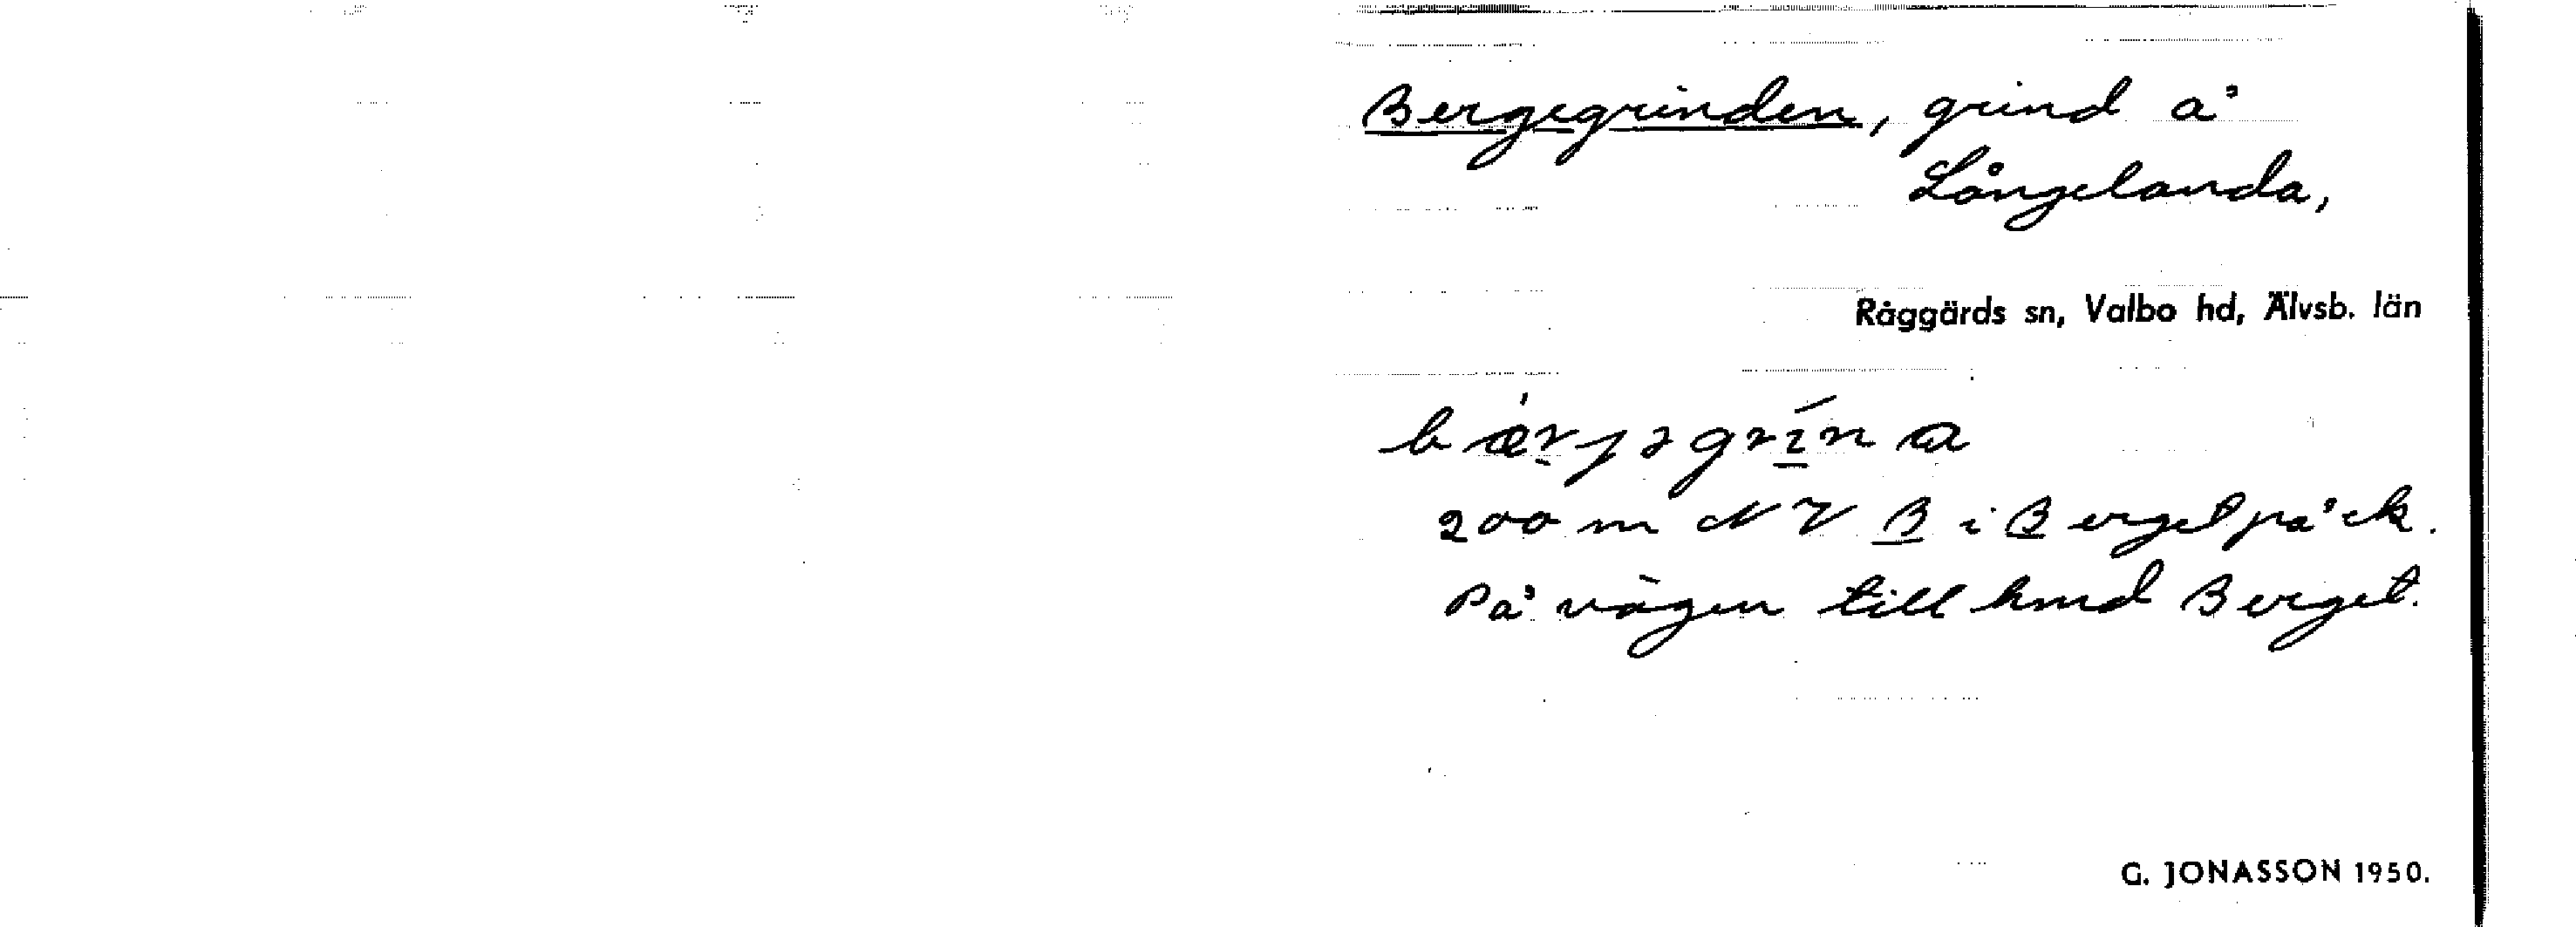 Bergegrinden, grind å
Långelanda,
Råggärds sn, Valbo hd, Älvsb. län
bærjəgrina
200 m NV B i Berget på ek.
På vägen till hmd Berget.
G. JONASSON 1950.